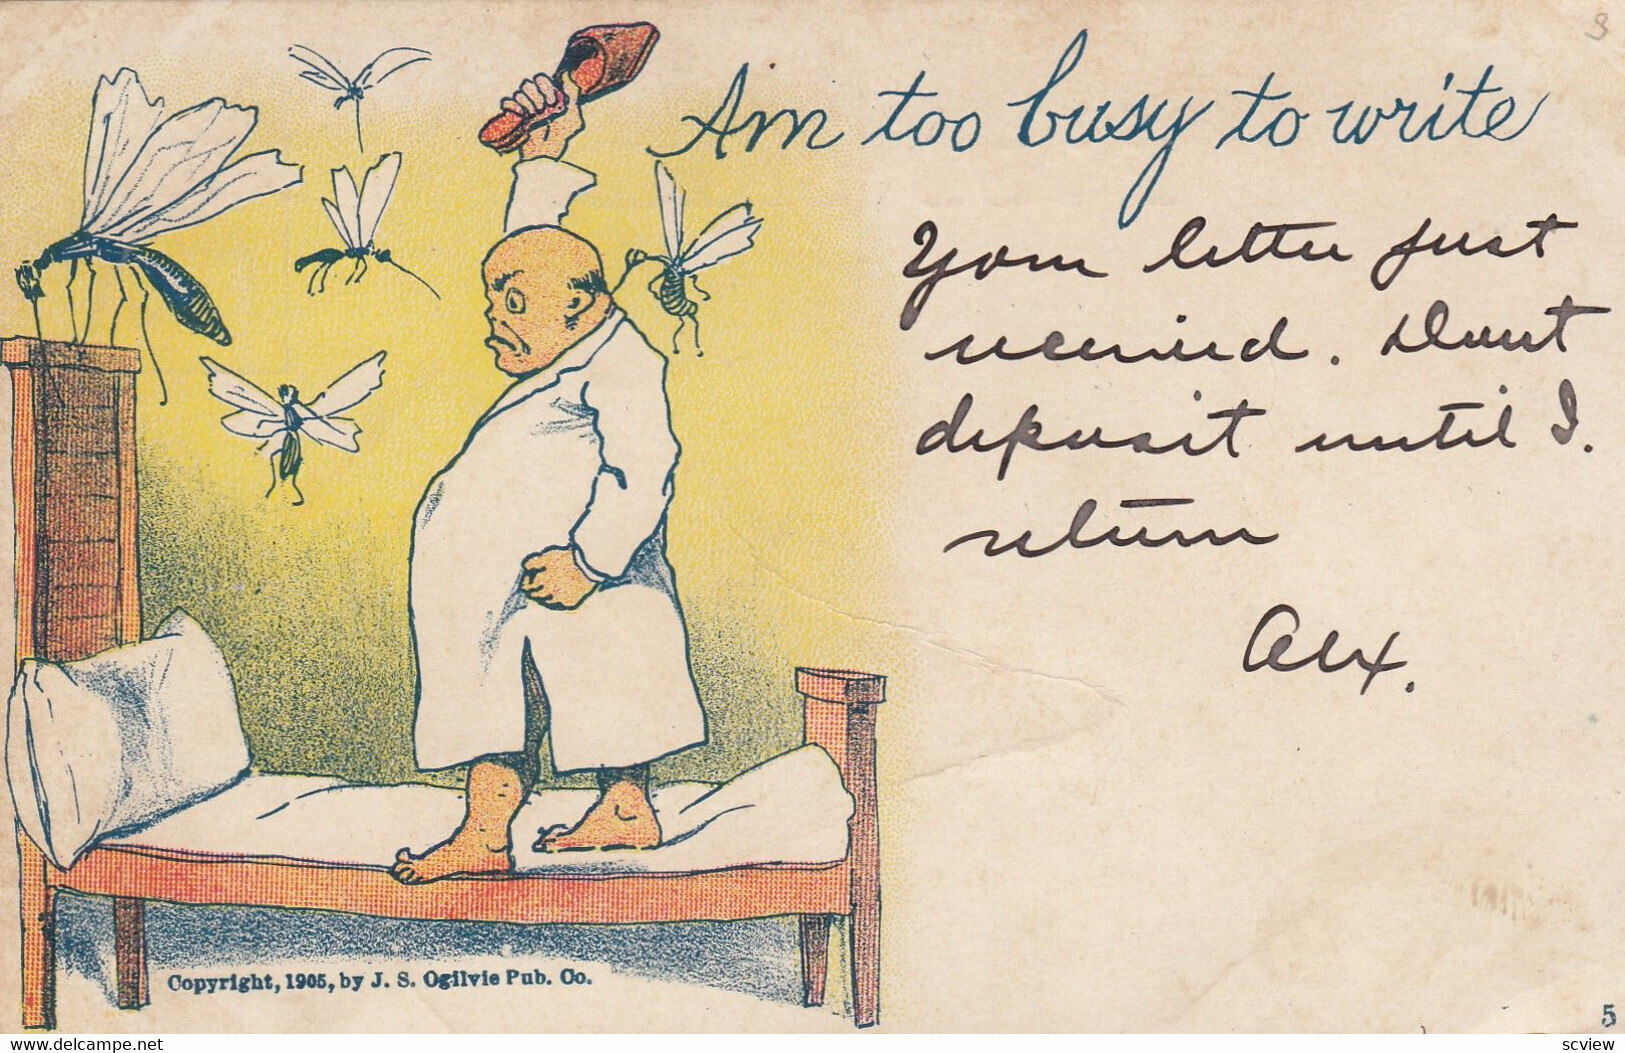 Am too busy to write
Your letter just
received. Dont
deposit until I.
return
Alex.
Copyright, 1905, by J. S. Ogilvie Pub. Co.
5
3
www.delcampe.net
scview